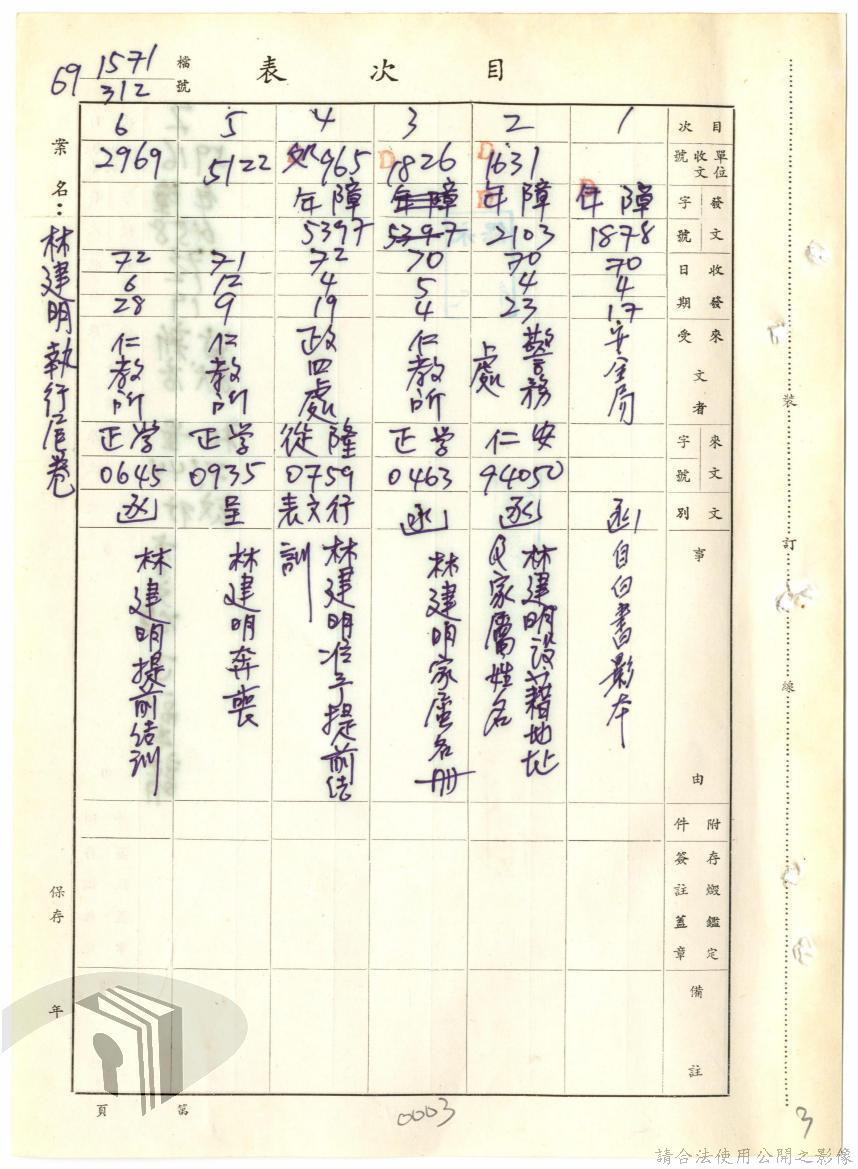 目次表
檔號
69 1571/312
案名：林建明執行信卷
保存 年
目次
單位收文號
發文字號
收發日期
來文者
受文者
來文字號
文別
事由
附件
存燬鑑定
簽註蓋章
備註
1
障年
1878
70
4
17
安全局
函
自白書影本
2
1631
障年
2103
70
4
23
警務處
安仁
94050
函
林建明設籍地址及家屬姓名
3
1826
障年
5397
70
5
4
仁教所
学正
0463
函
林建明家屬名册
4
965
障年
5397
72
4
19
政四處
隆從
0759
行文表
林建明准予提前結訓
5
5122
71
12
9
仁教所
学正
0935
呈
林建明奔喪
6
2969
72
6
28
仁教所
学正
0645
函
林建明提前结訓
裝
訂
線
第 頁
0003
3
請合法使用公開之影像